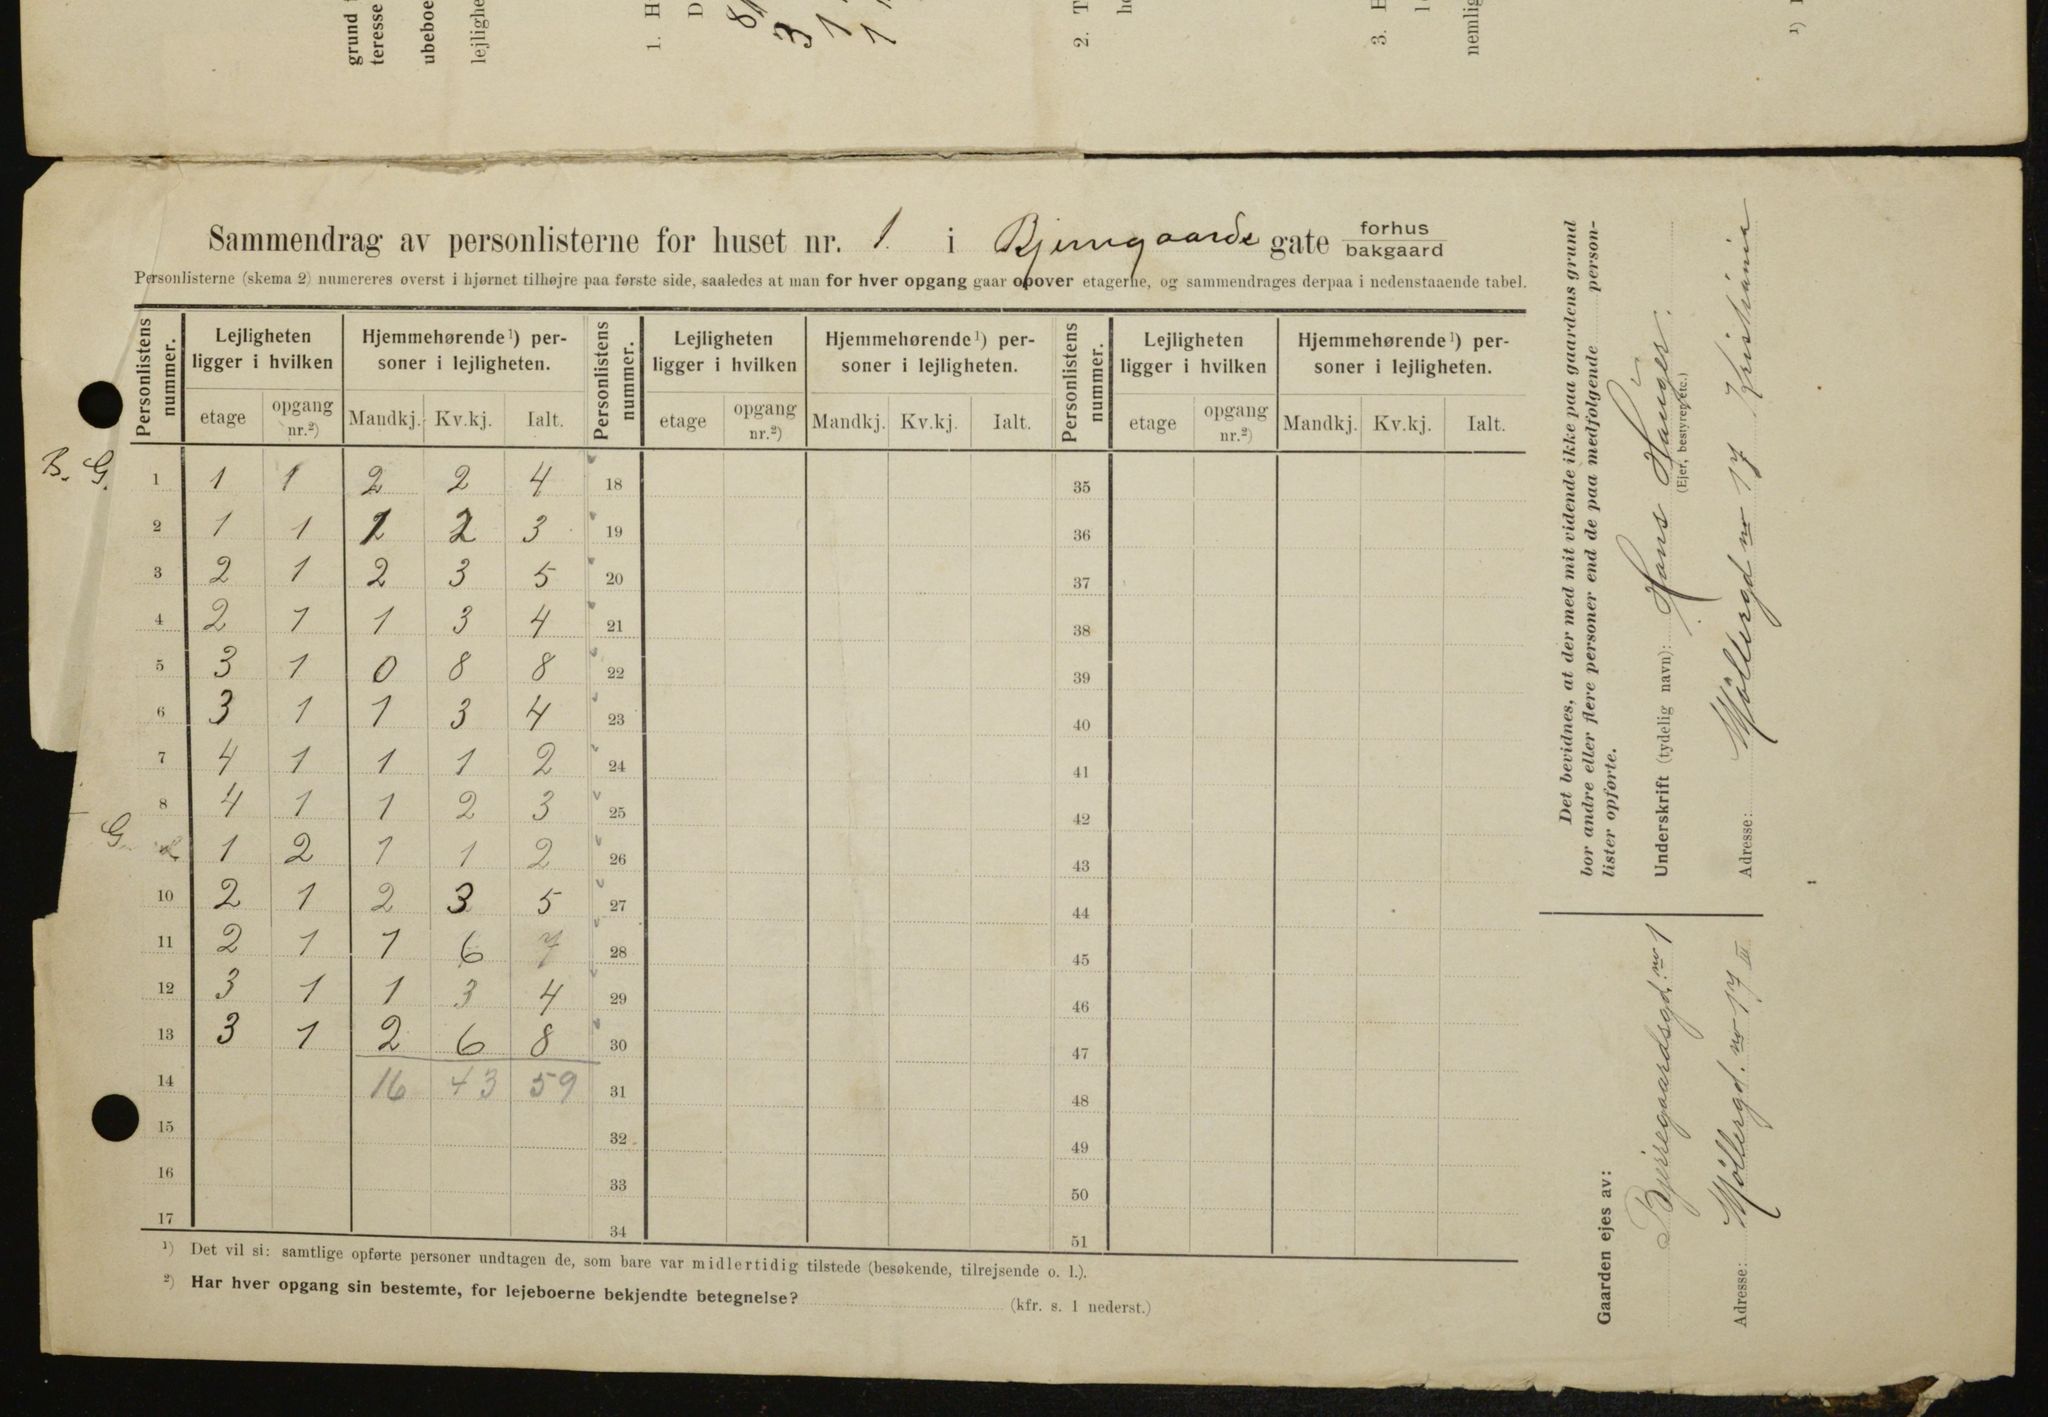 grund
teresse
ubeboe
lejlighe
1. H
D
3
1
1
2. T
h
3. H
nemlig
¹)
Sammendrag av personlisterne for huset nr. 1. i Bjerregaards gate forhus
bakgaard
Personlisterne (skema 2) numereres øverst i hjørnet tilhøjre paa første side, saaledes at man for hver opgang gaar opover etagerne, og sammendrages derpaa i nedenstaaende tabel.
Personlistens nummer. Lejligheten ligger i hvilken Hjemmehørende¹) personer i lejligheten. Personlistens nummer. Lejligheten ligger i hvilken Hjemmehørende¹) personer i lejligheten. Personlistens nummer. Lejligheten ligger i hvilken Hjemmehørende¹) personer i lejligheten.
etage opgang nr.²) Mandkj. Kv.kj. Ialt. etage opgang nr.²) Mandkj. Kv.kj. Ialt. etage opgang nr.²) Mandkj. Kv.kj. Ialt.
B. G. 1 1 1 2 2 4 18 35
2 1 1 1 2 3 19 36
3 2 1 2 3 5 20 37
4 2 1 1 3 4 21 38
5 3 1 0 8 8 22 39
6 3 1 1 3 4 23 40
7 4 1 1 1 2 24 41
8 4 1 1 2 3 25 42
G. 1 2 1 1 2 26 43
10 2 1 2 3 5 27 44
11 2 1 1 6 7 28 45
12 3 1 1 3 4 29 46
13 3 1 2 6 8 30 47
14 16 43 59 31 48
15 32 49
16 33 50
17 34 51
¹) Det vil si: samtlige opførte personer undtagen de, som bare var midlertidig tilstede (besøkende, tilrejsende o. l.).
²) Har hver opgang sin bestemte, for lejeboerne bekjendte betegnelse? (kfr. s. 1 nederst.)
Det bevidnes, at der med mit vidende ikke paa gaardens grund
bor andre eller flere personer end de paa medfølgende person-
lister opførte.
Underskrift (tydelig navn): Hans Hauger.
(Ejer, bestyrer etc.)
Adresse: Møllergd no 17 Kristiania
Gaarden ejes av:
Bjerregaardsgd. no 1
Adresse: Møllergd. no 17 III